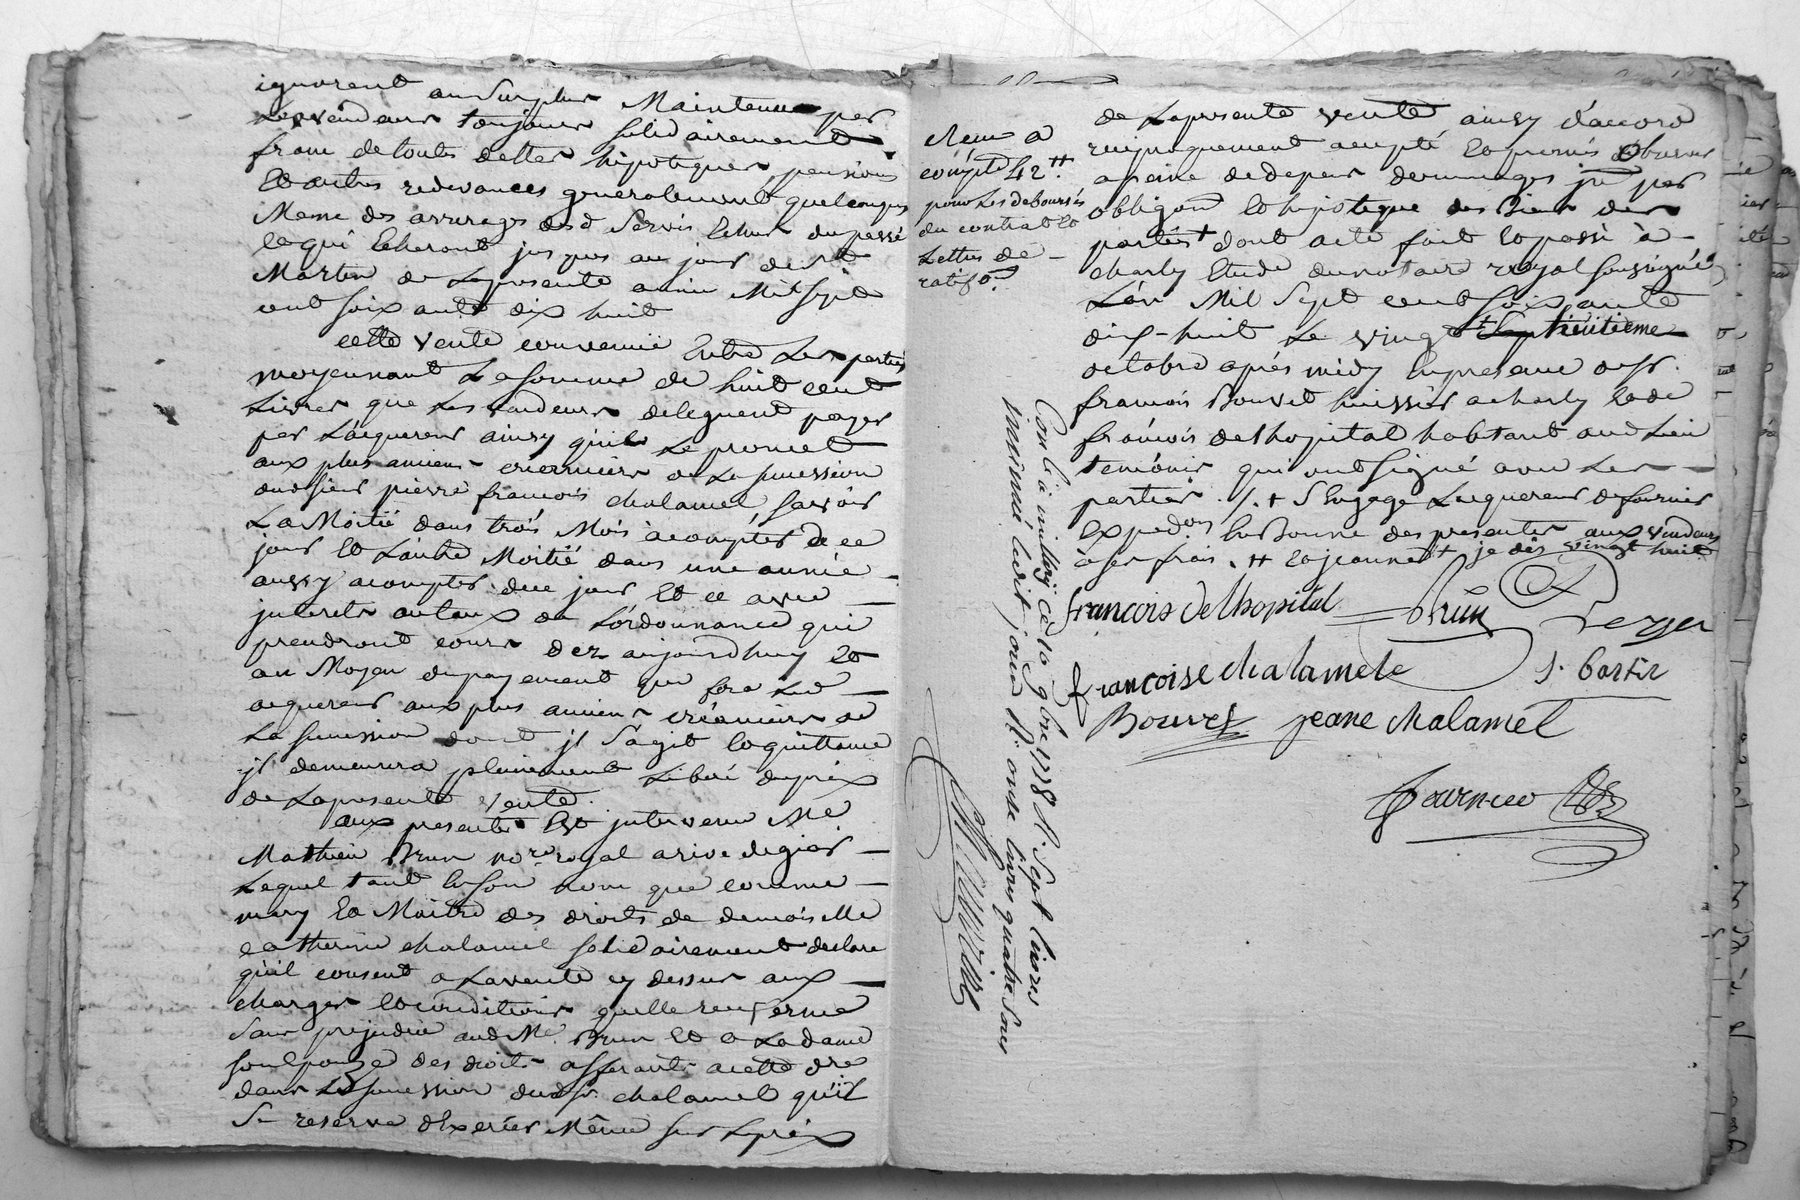 ignorent au Surplus Maintenue par
Les vendeurs toujours solidairement
franc de toutes dettes hipoteques, pensions
Et autres redevances generalement quelconques
Meme des arrerages desd Servis Echus du passé
et qui Echeront jusques au jour de St
Martin de La presente année Mil Sept
cent soixante dix huit
cette vente convenue Entre Les parties
moyennant La somme de huit cent
Livres que Les vendeurs deleguent payer
par L'aquereur ainsy qu'il Le promet
aux plus anciens creanciers de La succession
dud sieur pierre francois chalamel, sçavoir
La Moitié dans trois Mois à compter de ce
jour Et L'autre Moitié dans une année
aussy a compter de ce jour Et ce avec
interets au taux de L'ordonnance qui
prendront cours dez aujourdhuy Et
au Moyen du payement que fera Led
aquereur aux plus anciens créanciers de
La succession dont jl s'agit Et quittance
jl demeurera plainement Liberé du prix
de La presente vente.
aux presentes Est jntervenu Me
Mathieu Brun nore royal a rive de gier
Lequel tant En son nom que comme
mary Et Maitre des droits de demoiselle
catherine chalamel solidairement declare
qu'il consent a La vente cy dessus aux
charges Et conditions quelle renferme
Sans prejudice aud Me. Brun Et a La dame
son Epouze des droits afferants a cette dre
dans La succession dud sr. chalamel qu'il
Se reserve d'Exercer Même sur Le prix
Reçu a
compte 42 ₶.
pour Les deboursés
du contrat Et
Lettres de
ratifon.
de La presente vente ainsy d'accord
reciproquement accepté Et promis observer
a peine de depens dommages jts par
obligaon Et hipoteque des Biens des
parties + dont acte fait Et passé à
charly Etude du notaire royal soussigné
L'an Mil Sept cent soixante
dix-huit Le vingt huitieme
octobre après midy En presence de sr.
francois Bouvet huissier a charly Et de
francois delhopital habitant aud Lieu
temoins qui ont signé avec Les
parties ./. + S'Engage L'aquereur de fournir
Expedon. En Bonne des presentes aux vendeurs
à ses frais . ++ Et jeanne + je dis vingt huit
francois delhopital Brun Verzer
françoise chalamele J. bartir
Bouvet jeane chalamel
fournereau
Con.lé à millery ce 10 9bre 1778 R. Sept livres
insinué ledit jour R. onze livres quatre Sous